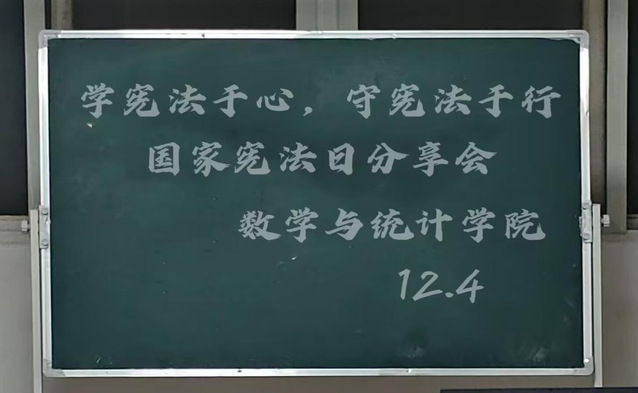 学宪法于心，守宪法于行
国家宪法日分享会
数学与统计学院
12.4